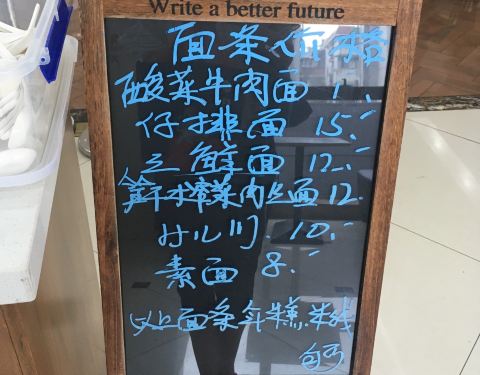 Write a better future
面条价格
酸菜牛肉面 1
仔排面 15.
三鲜面 12.
笋干榨菜肉丝面 12.
片儿川 10.
素面 8.
以上面条年糕.米线